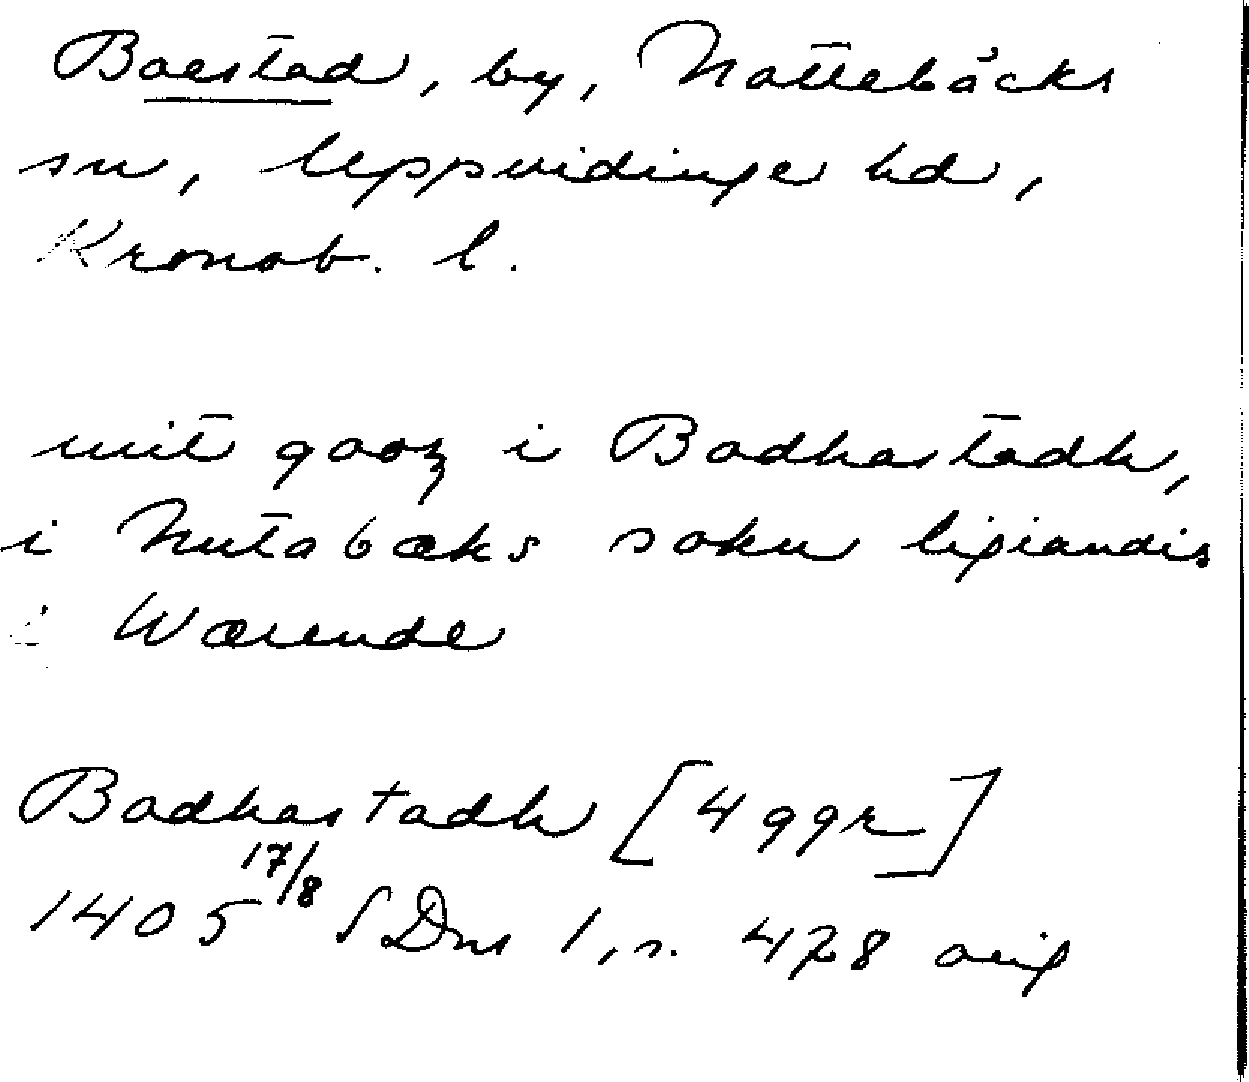 Boestad, by, Nottebäcks
sn, Uppvidinge hd,
Kronob. l.
mit gooz i Bodhastadh,
i Nutabæks sokn ligiandis
i Wærende
Bodhastadh [4 ggr]
1405 17/8 SDns 1, s. 428 orig